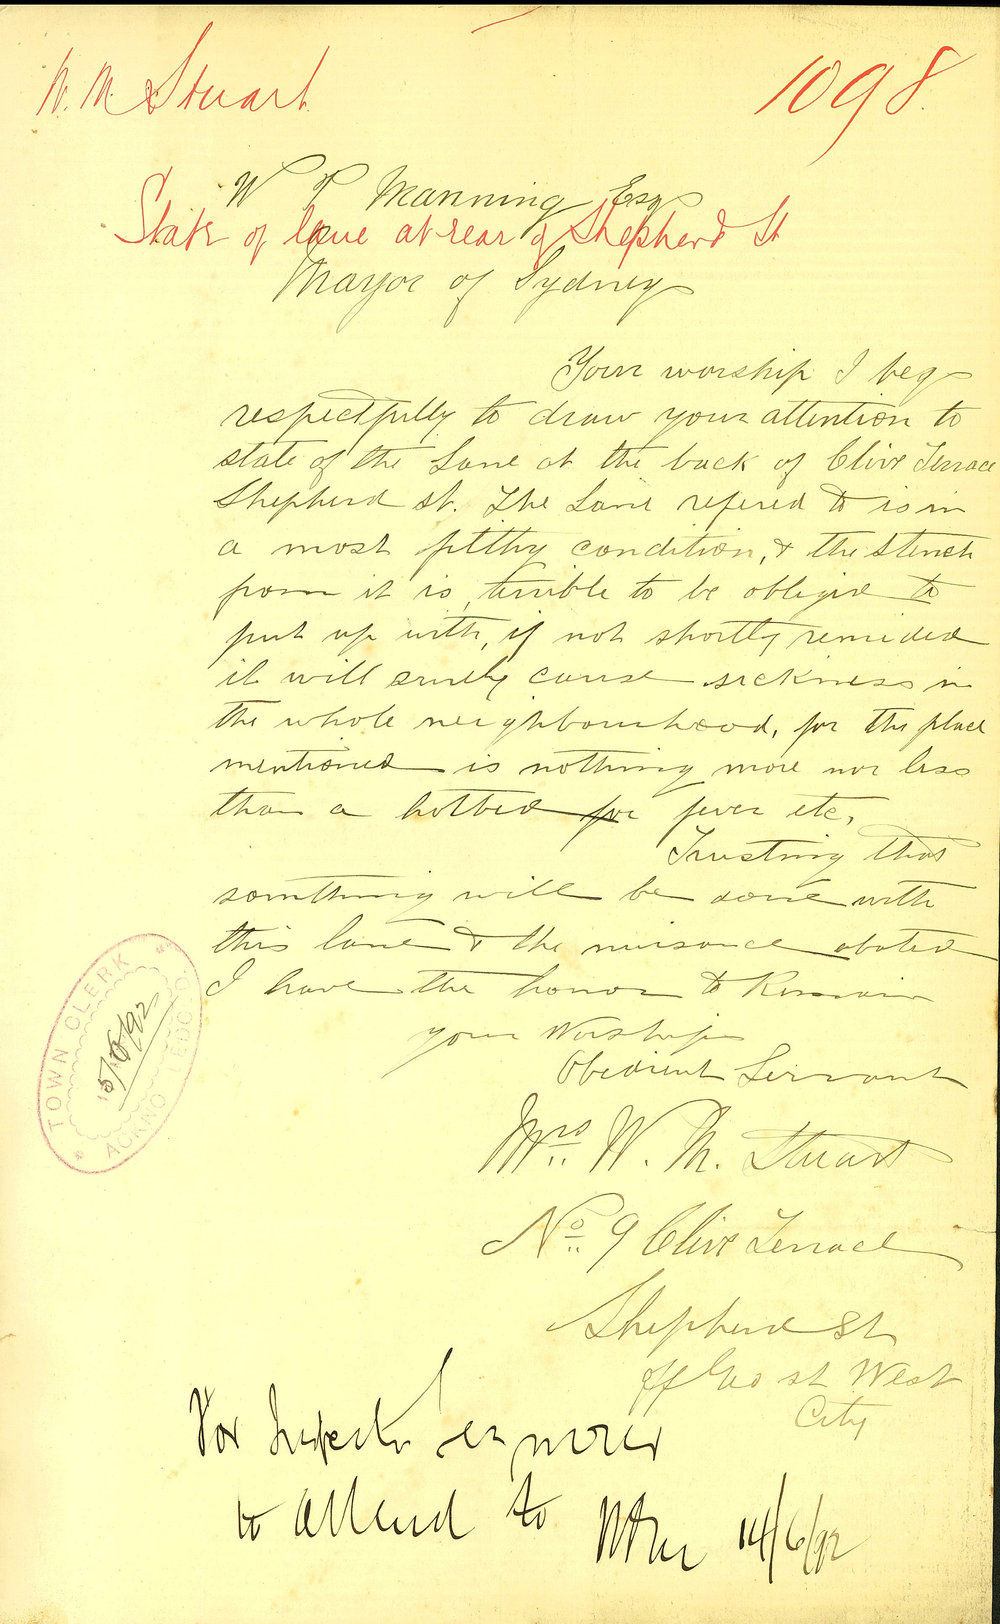 W. M. Stuart
1098.
W P Manning Esq
State of lane at rear of Shepherd St
Mayor of Sydney
Your worship I beg
respectfully to draw your attention to
state of the Lane at the back of Clive Terrace
Shepherd st. The Lane refered to is in
a most filthy condition, & the stench
from it is, terrible to be obliged to
put up with, if not shortly remided
it will surely cause sickness in
the whole neighbourhood, for the place
mentioned is nothing more nor less
than a hotbed for fever etc,
Trusting that
something will be done with
this lane & the nuisance abated
I have the honor to Remain
your Worships
Obedient Servant
Mrs W. M. Stuart
No 9 Clive Terrace
Shepherd St
off Geo st West
City
TOWN CLERK
15/6/92
ACKNOWLEDGED
For Inspector
to attend to
14/6/92